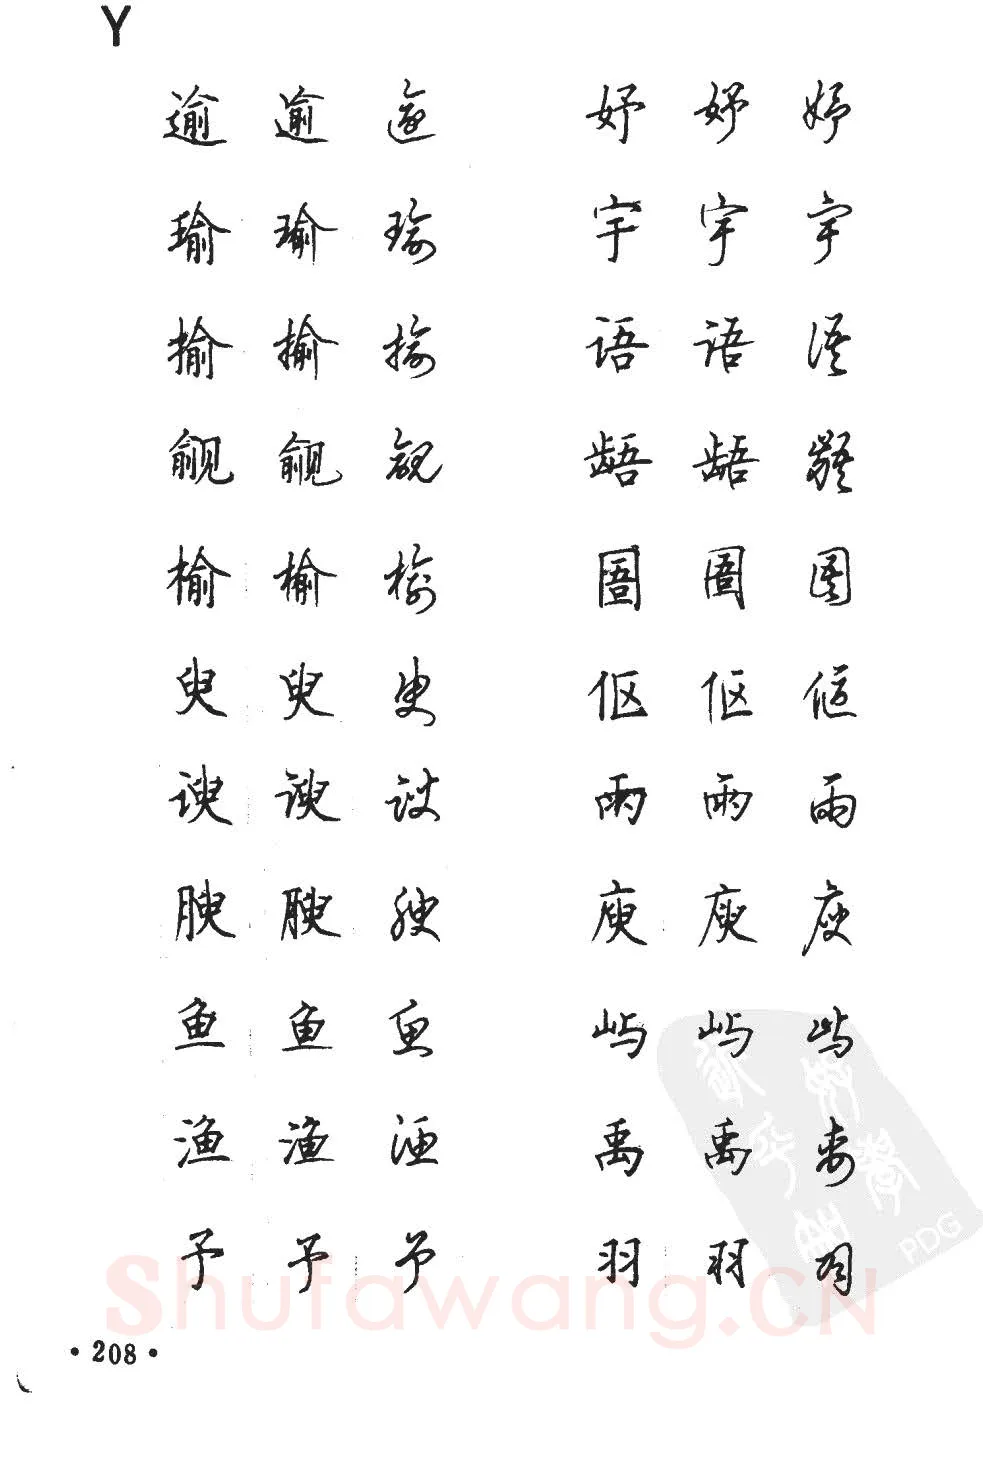 Y
逾 逾 逾 妤 妤 妤
瑜 瑜 瑜 宇 宇 宇
揄 揄 揄 语 语 语
觎 觎 觎 龉 龉 龉
榆 榆 榆 圄 圄 圄
臾 臾 臾 伛 伛 伛
谀 谀 谀 雨 雨 雨
腴 腴 腴 庾 庾 庾
鱼 鱼 鱼 屿 屿 屿
渔 渔 渔 禹 禹 禹
予 予 予 羽 羽 羽
PDG
Shufawang.CN
·208·